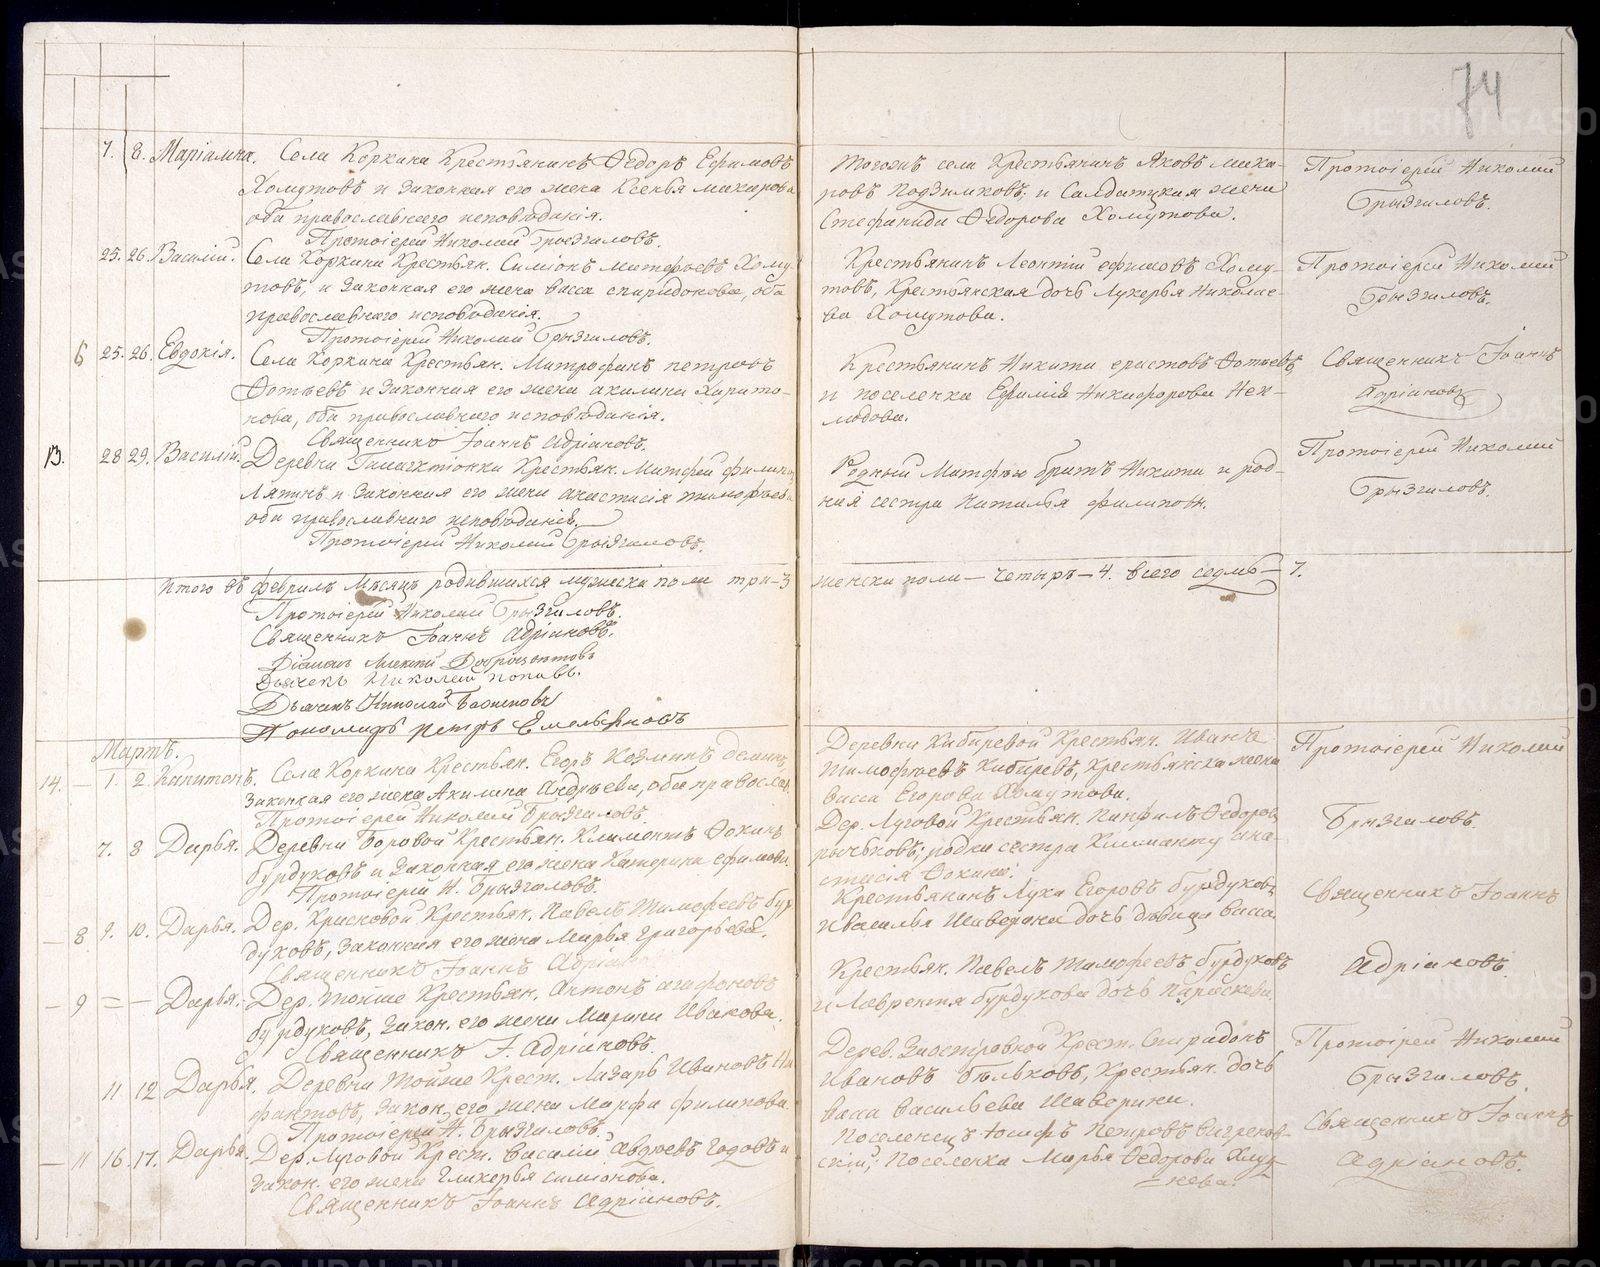 74
7. 8. Маріамна. Села Коркина Крестьянинъ Ѳедоръ Ефимовъ
Хомутовъ и законная его жена Ксенья макарова
оба православнаго исповѣданія.
Протоіерей Николай Брызгаловъ.
Тогожъ села Крестьянинъ Яковъ мака-
ровъ Подзимковъ; и Салдатская жена
Стефанида Ѳедорова Хомутова.
Протоіерей Николай
Брызгаловъ.
25. 26. Василій. Села Коркина Крестьян. Симіонъ матѳѣевъ Хому-
товъ, и законная его жена васса спиридонова, оба
православнаго исповѣданія.
Протоіерей Николай Брызгаловъ.
Крестьянинъ Леонтій ефимовъ Хому-
товъ, Крестьянская дочь Лукерья Николае-
ва Хомутова.
Протоіерей Николай
Брызгаловъ.
6 25. 26. Евдокія. Села Коркина Крестьян. Митрофанъ петровъ
Ѳотѣевъ и законная его жена акилина Харито-
нова, оба православнаго исповѣданія.
Священникъ Іоаннъ Адріановъ.
Крестьянинъ Никита ерастовъ Ѳотѣевъ
и поселенка Ефимія Никифорова Нек-
людова.
Священникъ Іоаннъ
Адріановъ
13. 28 29. Василій. Деревни Крестьян. Матфей филип
Лапинъ и законная его жена анастасія тимофѣева
оба православнаго исповѣданія.
Протоіерей Николай Брызгаловъ.
Родный Матфѣю братъ Никита и род-
ная сестра Наталья филиповы.
Протоіерей Николай
Брызгаловъ.
Итого въ февралѣ Мѣсяцѣ родившихся мужеска пола три-3
женска пола - четыре - 4. всего седмь - 7.
Протоіерей Николай Брызгаловъ.
Священникъ Іоаннъ Адріановъ.
Діаконъ Алексій
Дьячекъ Николай поповъ.
Дьячекъ Николай
Пономарь Петръ Емельяновъ
Мартъ.
14. - 1. 2. Капитонъ. Села Коркина Крестьян. Егоръ Козминъ деминъ
законная его жена Акилина Андрѣева, оба православ.
Протоіерей Николай Брызгаловъ.
Деревни Кибиревой Крестьян. Иванъ
Тимофѣевъ Кибиревъ, Крестьянска жена
васса Егорова Хомутова.
Протоіерей Николай
7. 8 Дарья. Деревни Боровой Крестьян. Климентъ Ѳокинъ
бурдуковъ и законная его жена Катерина ефимова.
Протоіерей Н. Брызгаловъ.
Дер. Луговой Крестьян. Панфилъ Ѳедоровъ
рычьковъ; родна сестра Клименту ана-
стасія Ѳокина.
Брызгаловъ.
- 8 9. 10. Дарья. Дер. Крестьян. Павелъ Тимофеевъ бур
дуковъ, законная его жена Марья Григорьева.
Священникъ Іоаннъ Адріановъ
Крестьянинъ Лука Егоровъ бурдуковъ
и василья Шаверина дочь дѣвица васса
Священникъ Іоаннъ
Адріановъ.
- 9 = - Дарья. Дер. Тойже Крестьян. Антонъ агафоновъ
бурдуковъ, закон. его жена Марина Иванова.
Священникъ І. Адріановъ.
Крестьян. Павелъ Тимофеевъ бурдуковъ
и Лаврентія бурдукова дочь Параскева.
11 12 Дарья. Деревни Тойже Крест. Лазарь Ивановъ
фантовъ, закон. его жена Марфа филипова.
Протоіерей Н. Брызгаловъ.
Дерев. Заостровной Крест. Спиридонъ
Ивановъ бѣльковъ, Крестьян. дочь
васса васильева Шаверина.
Протоіерей Николай
Брызгаловъ.
- 11 16. 17. Дарья. Дер. Луговой Крест. Василій Авдѣевъ Годовъ и
закон. его жена Гликерья симіонова.
Священникъ Іоаннъ Адріановъ.
Поселенецъ Іосифъ Петровъ
скій; Поселенка Марья Ѳедорова
нева.
Священникъ Іоаннъ
Адріановъ.